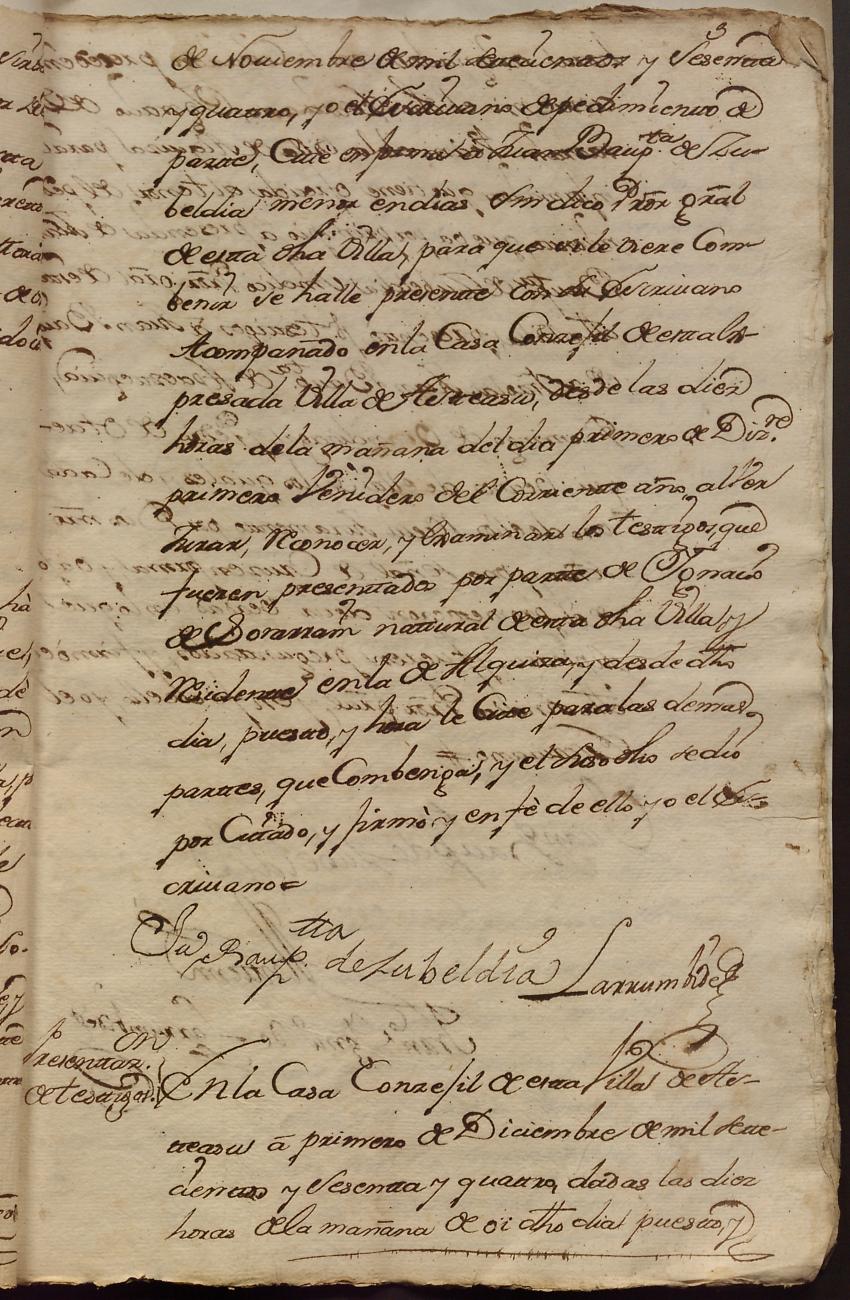 3
de Noviembre de mil setecientos y Sesenta
y quattro, yo el Escrivano de pedimiento de
parte, Cite en forma a Juan Baup.ta de Zu-
beldia menor en dias Sindico Pror gral
de esta dha Villa, para que si le viere Com-
benir se halle presente con su Escrivano
Acompañado en la Casa Conzejil de esta ex-
presada Villa de Asteasu, desde las diez
horas de la mañana del dia primero de Diz.re
primero Venidero del Corriente año, al ver
Jurar, Reconocer, y Examinar los testigos, que
fueren presentados por parte de Ygnacio
de Sorarrain natural de esta dha Villa, y
Residente en la de Alquiza, y desde dho
dia, puesto, y hora le Cite para las demas
partes, que Combenga, y el suso dho se dio
por Citado, y firmò y en fè de ello yo el Es-
crivano=
Ju.n Baup.tta de Zubeldia Larrumbide
Presentaz.on
de testigos.
En la Casa Conzejil de esta Villa de As-
teasu â primero de Diciembre de mil sete-
cientos y Sesenta y quattro, dadas las diez
horas de la mañana de oi dho dia, puesto, y